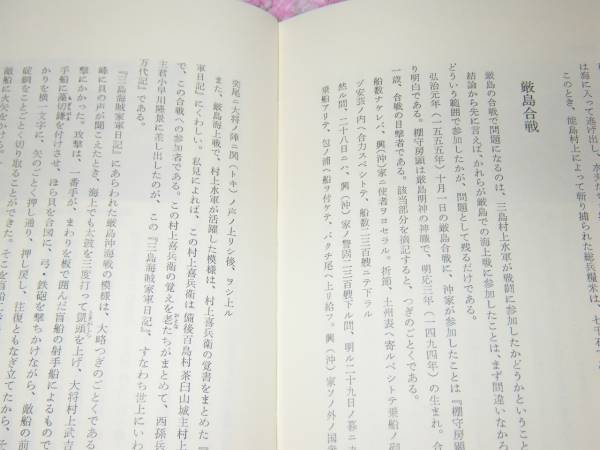 は海に入って逃げ
このとき、能島村上によって斬り捕られた総兵糧米は、七千石
厳島合戦
厳島の合戦で問題になるのは、三島村上水軍が戦闘に参加したか、どうかということ
結論から先に言えば、かれらが厳島での海上戦に参加したことは、まず間違いなかろ
どういう範囲で参加したかが、問題として残るだけである。
弘治元年(一五五五年)十月一日の厳島合戦に、沖家が参加したことは『棚守房顕
り明白である。棚守房顕は厳島明神の神職で、明応三年(一四九四年)の生まれ。合
一歳、合戦の目撃者である。該当部分を摘記すると、つぎのごとくである。
船数ナケレバ、興(沖)家ニ使者ヲヨセラル。折節、土州表ヘ寄ルベシトテ乗船ノ砌
ヅ安芸ノ内ヘ合力スベシトテ、船数二三百艘ニテ下ラル
然ル間、二十八日ニハ、興(沖)家ノ警固二三百艘下ル間、明ル二十九日ノ暮ニカ
乗船アリテ、包ノ浦ヘ船ヲ付ケテ、バクチ尾ヘ上リ給フ。興(沖)家ソノ外ノ国衆
奕尾ニ大将ノ陣ニ関(トキ)ノ声ノ上リシ後、ヲシ上ル
また、厳島海上戦で、村上水軍が活躍した模様は、村上喜兵衛の覚書をまとめた『
軍日記』にくわしい。私見によれば、この村上喜兵衛は備後百島村茶臼山城主村上
で、この合戦への参加者である。この村上喜兵衛の覚えを老たちがまとめて、西孫兵
主君小早川隆景に差し出したのが、この『三島海賊家軍日記』、すなわち世上にいわ
万代記』である。
『三島海賊家軍日記』にあらわれた厳島沖海戦の模様は、大略つぎのごとくである
峰に貝の声が聞こえたとき、海上でも太鼓を三度打って凱頭を上げ、大将村上武吉
撃にかかった。攻撃は、一番手が、まわりを板で囲んだ盲船の射手船によるもので
手船に藻切鎌を付けさせ、ほら貝を合図に、弓・鉄砲を撃ちかけながら、敵船の前
かりを横一文字に、矢のごとく押し通り、押し戻し、往復ともなぎ立てたから、そ
碇綱をことごとく切り取ることができた。そこを
敵船に火矢をかける。